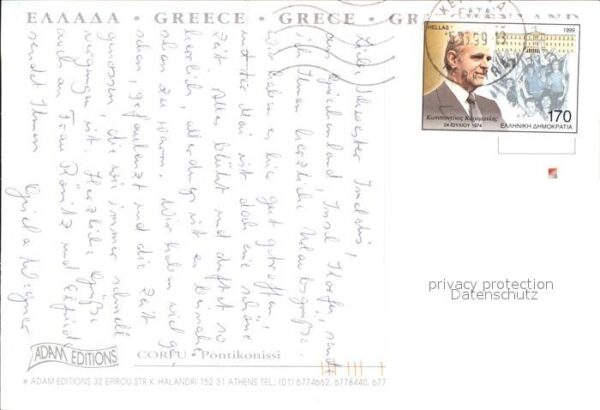 ΕΛΛΑΔΑ · GREECE · GRECE · GR
HELLAS
1999
Κωνσταντίνος Καραμανλής
24 ΙΟΥΛΙΟΥ 1974
170
ΕΛΛΗΝΙΚΗ ΔΗΜΟΚΡΑΤΙΑ
Liebe Schwester Imeldis!
Aus Griechenland, Insel Korfu, sende
ich Ihnen herzliche Urlaubsgrüße.
haben es hier gut getroffen,
Mai ist doch eine schöne
Zeit, alles blüht und duftet so
herrlich, allerdings ist es
schon zu warm. Wir haben viel ge-
sehen, gefaulenzt und die Zeit
genossen, die wie immer schnell
vergangen ist. Herzliche Grüße
auch an Frau und Elfriede
sendet Ihnen
privacy protection
Datenschutz
ADAM EDITIONS
CORFU · Pontikonissi
ADAM EDITIONS 32 EPIROU STR K. HALANDRI 152 31 ATHENS TEL.: (01) 6774662, 6778440, 677